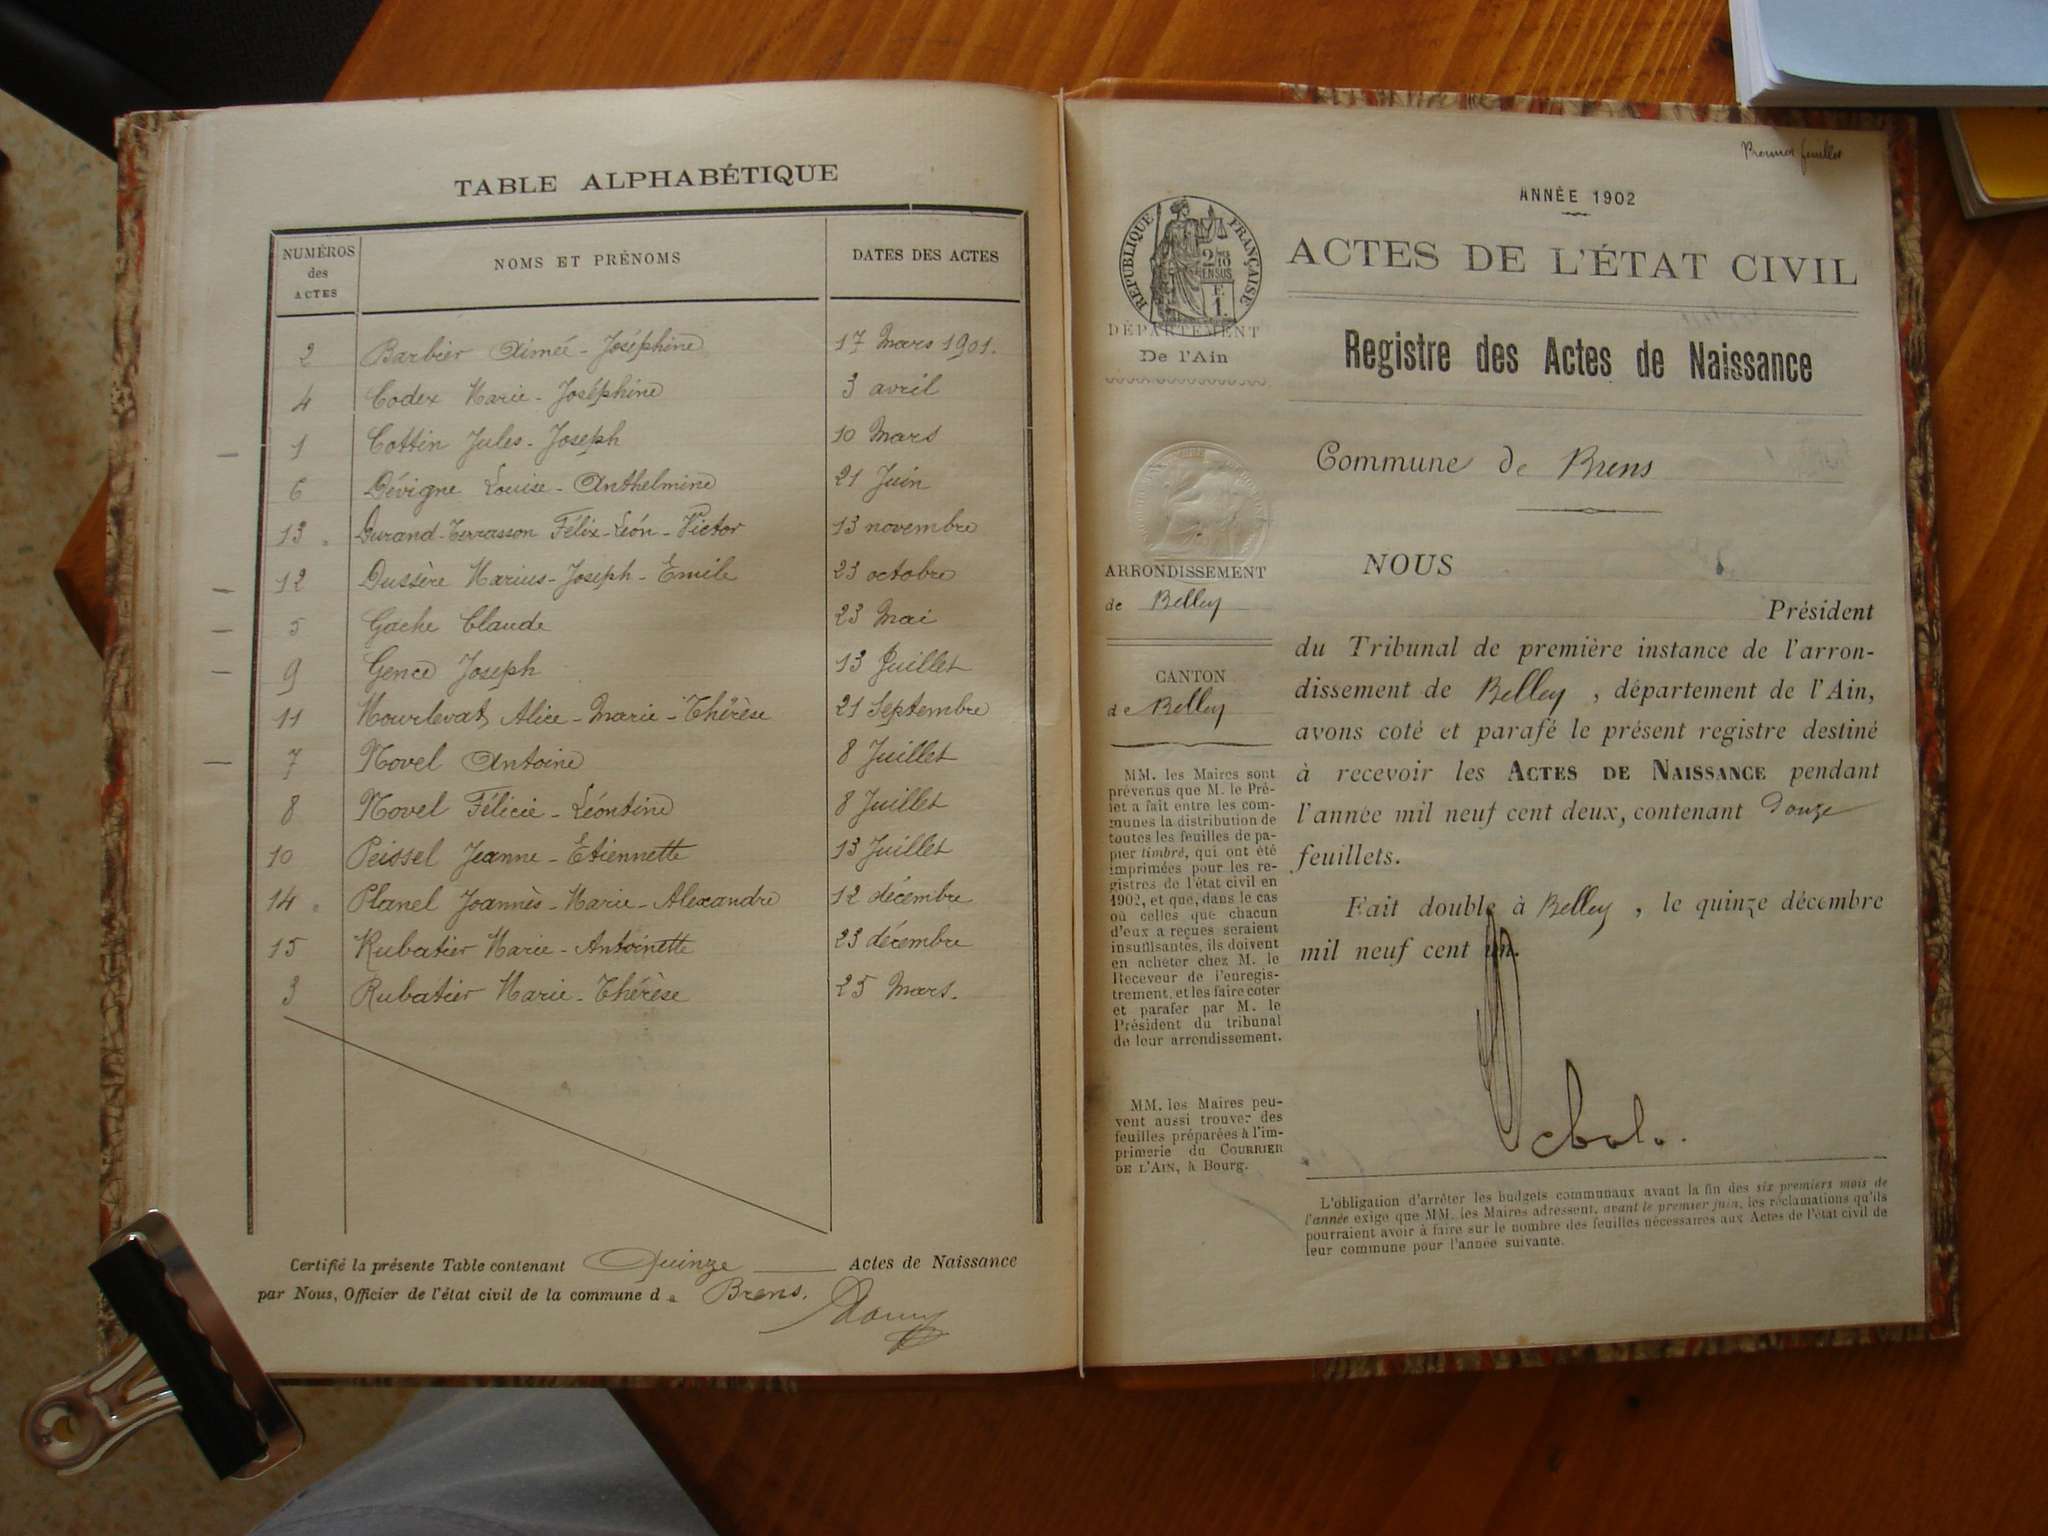 TABLE ALPHABÉTIQUE
NUMÉROS des ACTES NOMS ET PRÉNOMS DATES DES ACTES
2 Barbier Aimée-Joséphine 17 Mars 1901.
4 Codex Marie-Joséphine 3 avril
1 Cottin Jules-Joseph 10 Mars
6 Dévigne Louise-Anthelmine 21 Juin
13 Durand-Terrasson Félix-Léon-Victor 13 novembre
12 Dussère Marius-Joseph-Emile 23 octobre
5 Gache Claude 23 Mai
9 Gence Joseph 13 Juillet
11 Mourlevat Alice-Marie-Thérèse 21 Septembre
7 Novel Antoine 8 Juillet
8 Novel Félicie-Léontine 8 Juillet
10 Peissel Jeanne-Etiennette 13 Juillet
14 Planel Joannès-Marie-Alexandre 12 décembre
15 Rubatier Marie-Antoinette 23 décembre
3 Rubatier Marie-Thérèse 25 Mars.
Certifié la présente Table contenant Quinze Actes de Naissance
par Nous, Officier de l'état civil de la commune de Brens.
Premier feuillet
ANNÉE 1902
ACTES DE L'ÉTAT CIVIL
Registre des Actes de Naissance
Commune de Brens
RÉPUBLIQUE FRANÇAISE
2/10 EN SUS
F. 1.
DÉPARTEMENT
De l'Ain
ARRONDISSEMENT
de Belley
CANTON
de Belley
MM. les Maires sont
prévenus que M. le Pré-
fet a fait entre les com-
munes la distribution de
toutes les feuilles de pa-
pier timbré, qui ont été
imprimées pour les re-
gistres de l'état civil en
1902, et que, dans le cas
où celles que chacun
d'eux a reçues seraient
insuffisantes, ils doivent
en acheter chez M. le
Receveur de l'enregis-
trement, et les faire coter
et parafer par M. le
Président du tribunal
de leur arrondissement.
MM. les Maires peu-
vent aussi trouver des
feuilles préparées à l'im-
primerie du COURRIER
DE L'AIN, à Bourg.
NOUS
Président
du Tribunal de première instance de l'arron-
dissement de Belley, département de l'Ain,
avons coté et parafé le présent registre destiné
à recevoir les ACTES DE NAISSANCE pendant
l'année mil neuf cent deux, contenant douze
feuillets.
Fait double à Belley, le quinze décembre
mil neuf cent un.
L'obligation d'arrêter les budgets communaux avant la fin des six premiers mois de
l'année exige que MM. les Maires adressent, avant le premier juin, les réclamations qu'ils
pourraient avoir à faire sur le nombre des feuilles nécessaires aux Actes de l'état civil de
leur commune pour l'année suivante.